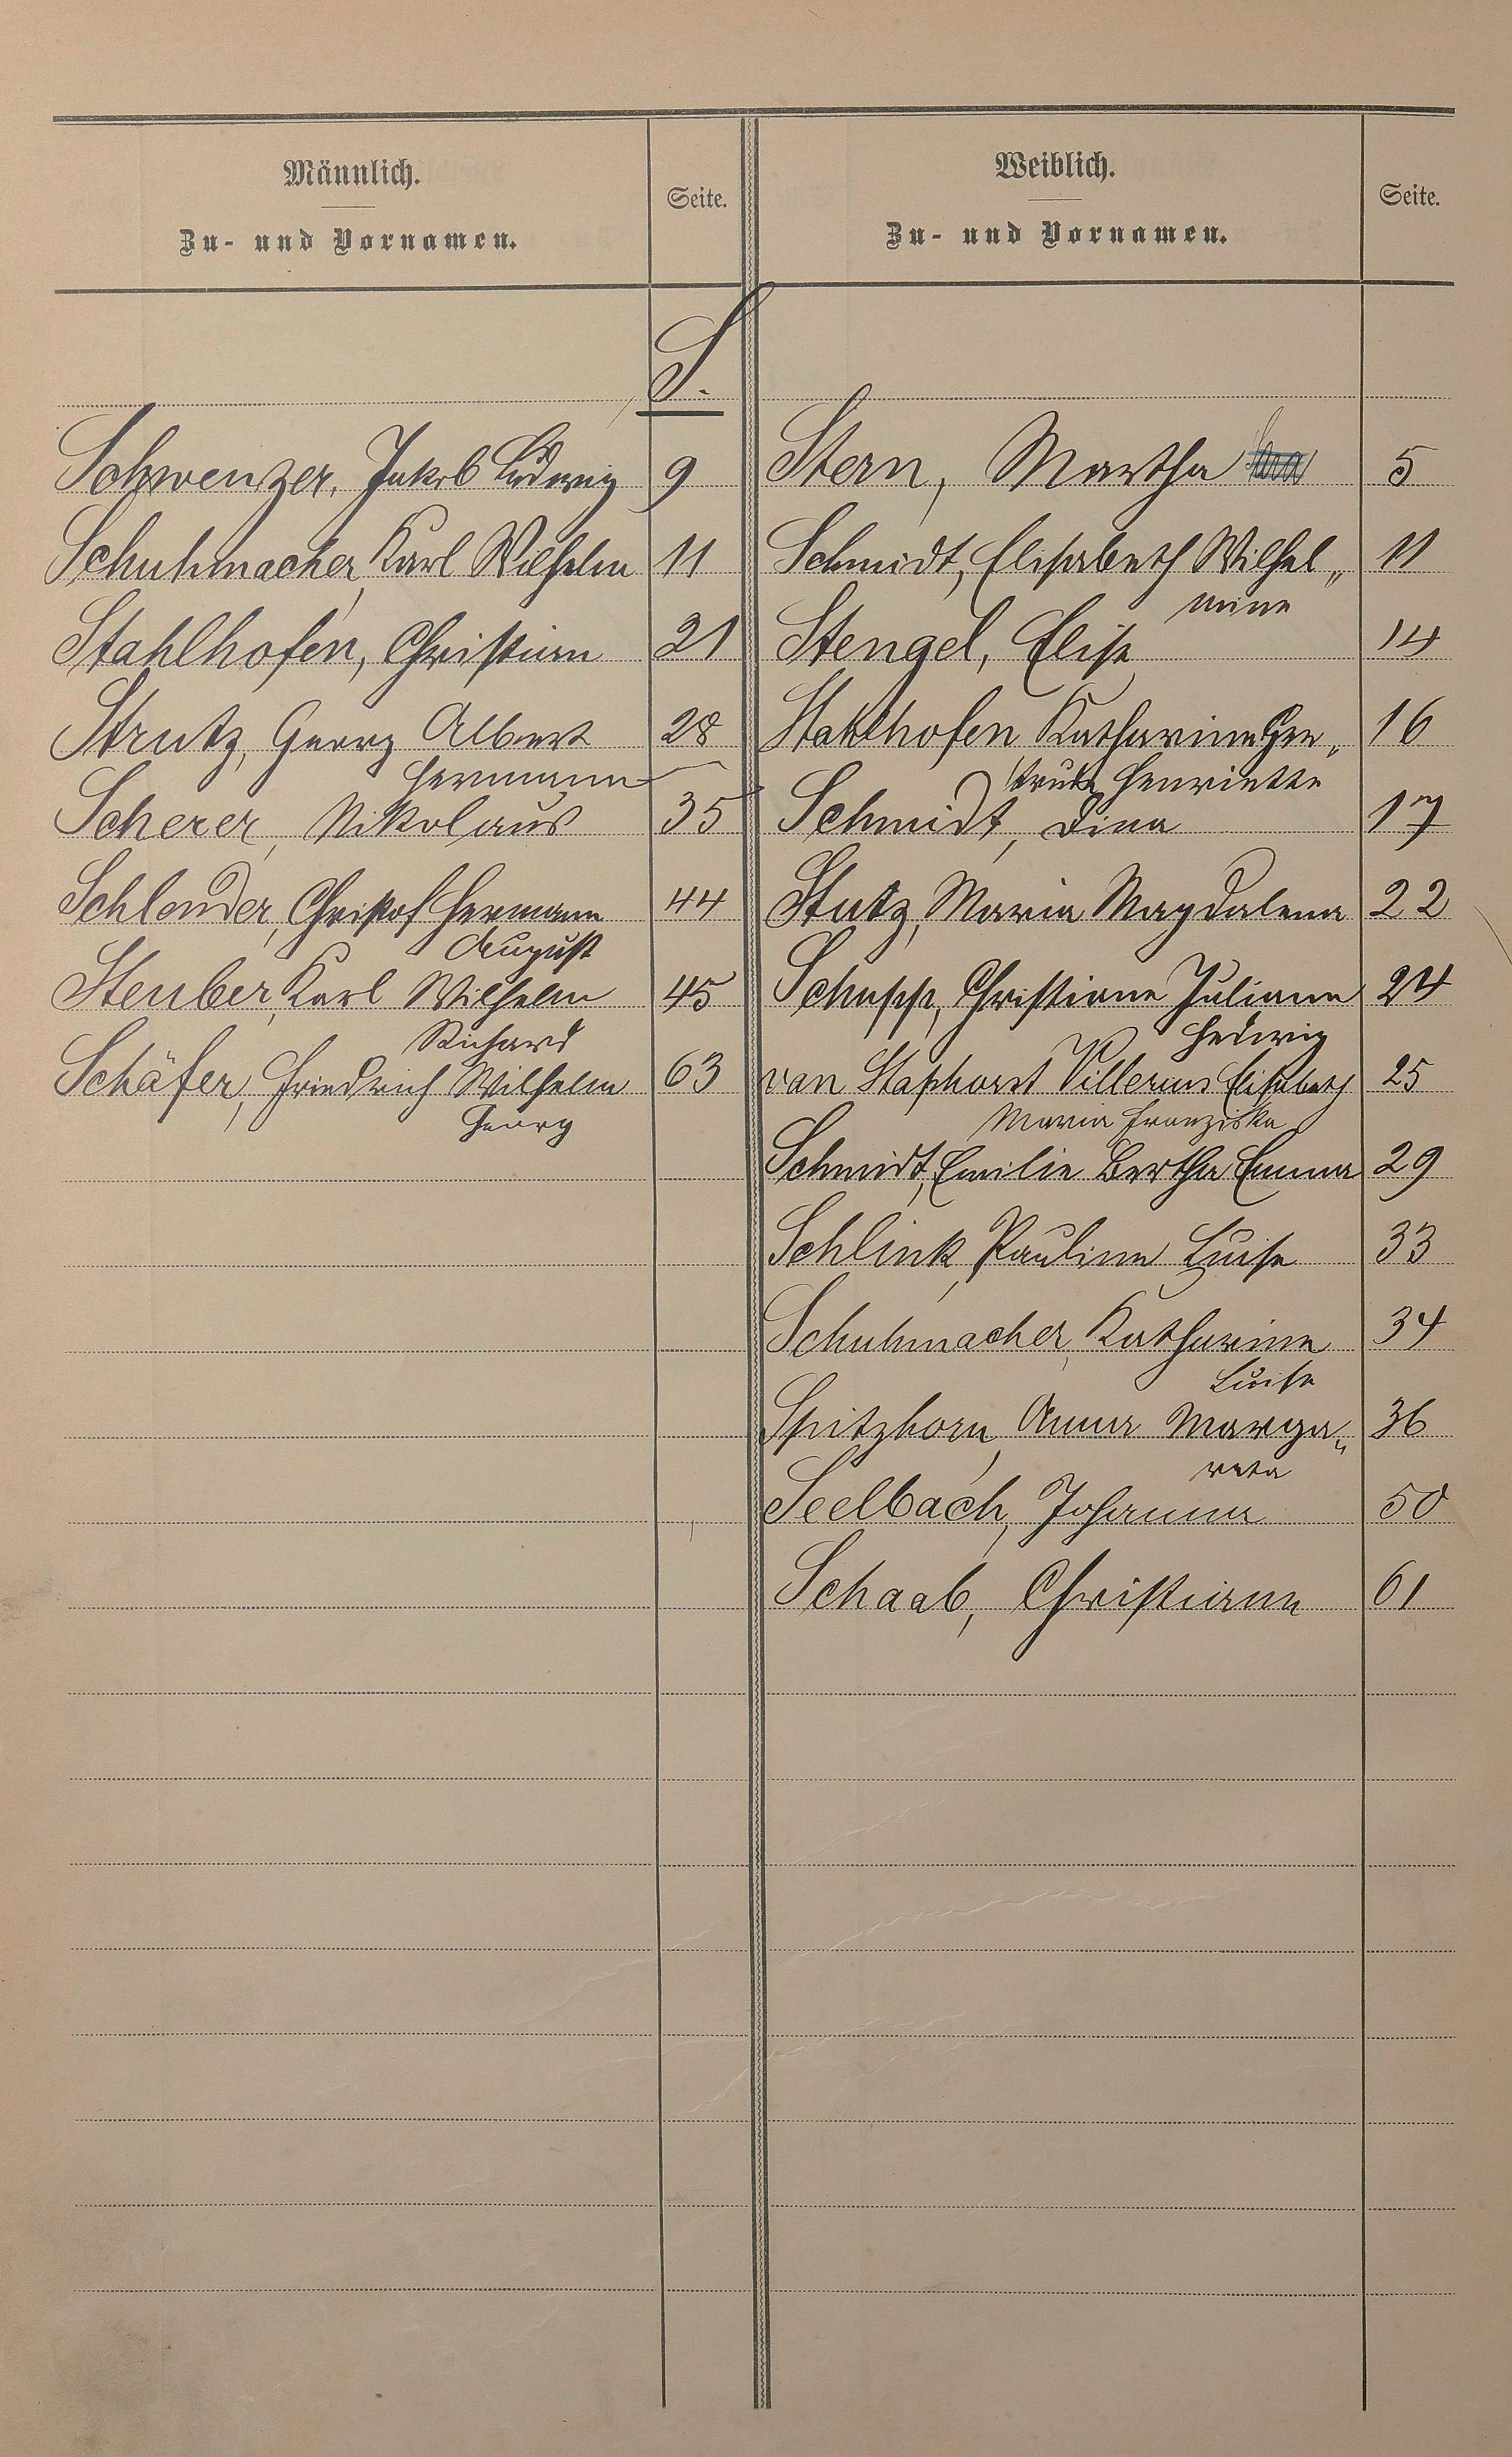 Männlich.
Zu- und Vornamen.
Seite.
Weiblich.
Zu- und Vornamen.
Seite.
S.
Schwenzer, Jakob Ludwig 9
Schuhmacher, Karl Wilhelm 11
Stahlhofen, Christian 21
Strutz, Georg Albert 28
Hermann
Scherer, Nikolaus 35
Schlender, Christof Hermann 44
August
Steuber, Karl Wilhelm 45
Richard
Schäfer, Friedrich Wilhelm 63
Georg
Stern, Martha 5
Schmidt, Elisabeth Wilhel„ 11
mine
Stengel, Elise 14
Stahlhofen Katharine Ger„ 16
trude Henriette
Schmidt, Dina 17
Stutz, Maria Magdalena 22
Schupp, Christiane Juliane 24
Hedwig
van Staphorst Villerius Elisabeth 25
Maria Franziska
Schmidt, Emilie Bertha Emma 29
Schlink, Pauline Luise 33
Schuhmacher, Katharine 34
Luise
Spitzhorn, Anna Marga„ 36
reta
Seelbach, Johanna 50
Schaab, Christiane 61